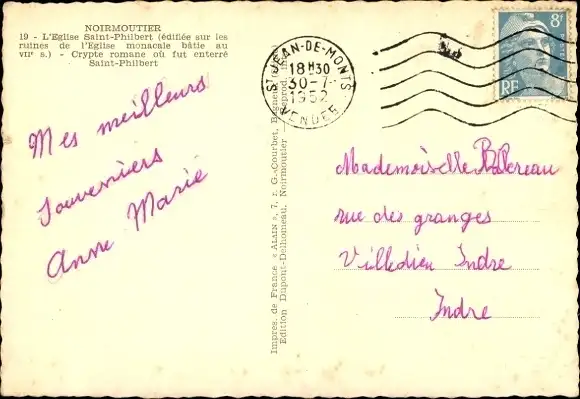 NOIRMOUTIER
19 - L'Eglise Saint-Philbert (édifiée sur les
ruines de l'Eglise monacale bâtie au
VIIᵉ s.) - Crypte romane où fut enterré
Saint-Philbert
Mes meilleurs
souveniers
Anne Marie
Impres. de France « ALAIN », 7, r. G.-Courbet, Bagneux
Edition Dupont-Delhomeau, Noirmoutier - Reprod.
ST JEAN-DE-MONTS
18H30
30-7
1952
VENDEE
8F
RF
Mademoiselle
rue des granges
Villedieu Indre
Indre